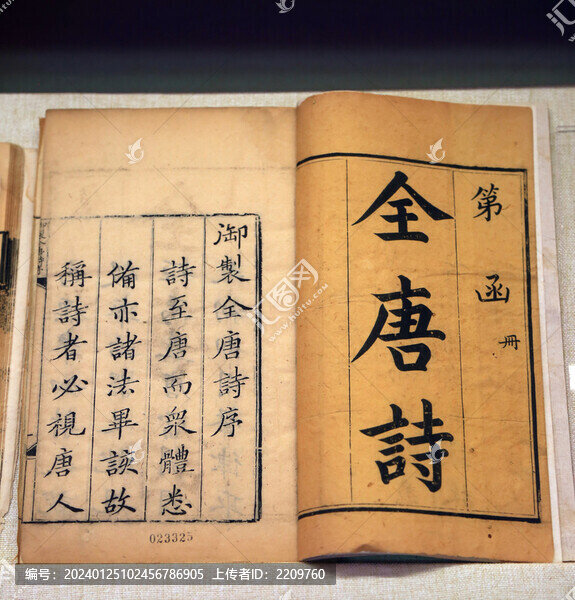 第 函 冊
全唐詩
御製全唐詩序
詩至唐而衆體悉
備亦諸法畢該故
稱詩者必視唐人
023325
编号:20240125102456786905 上传者ID:2209760